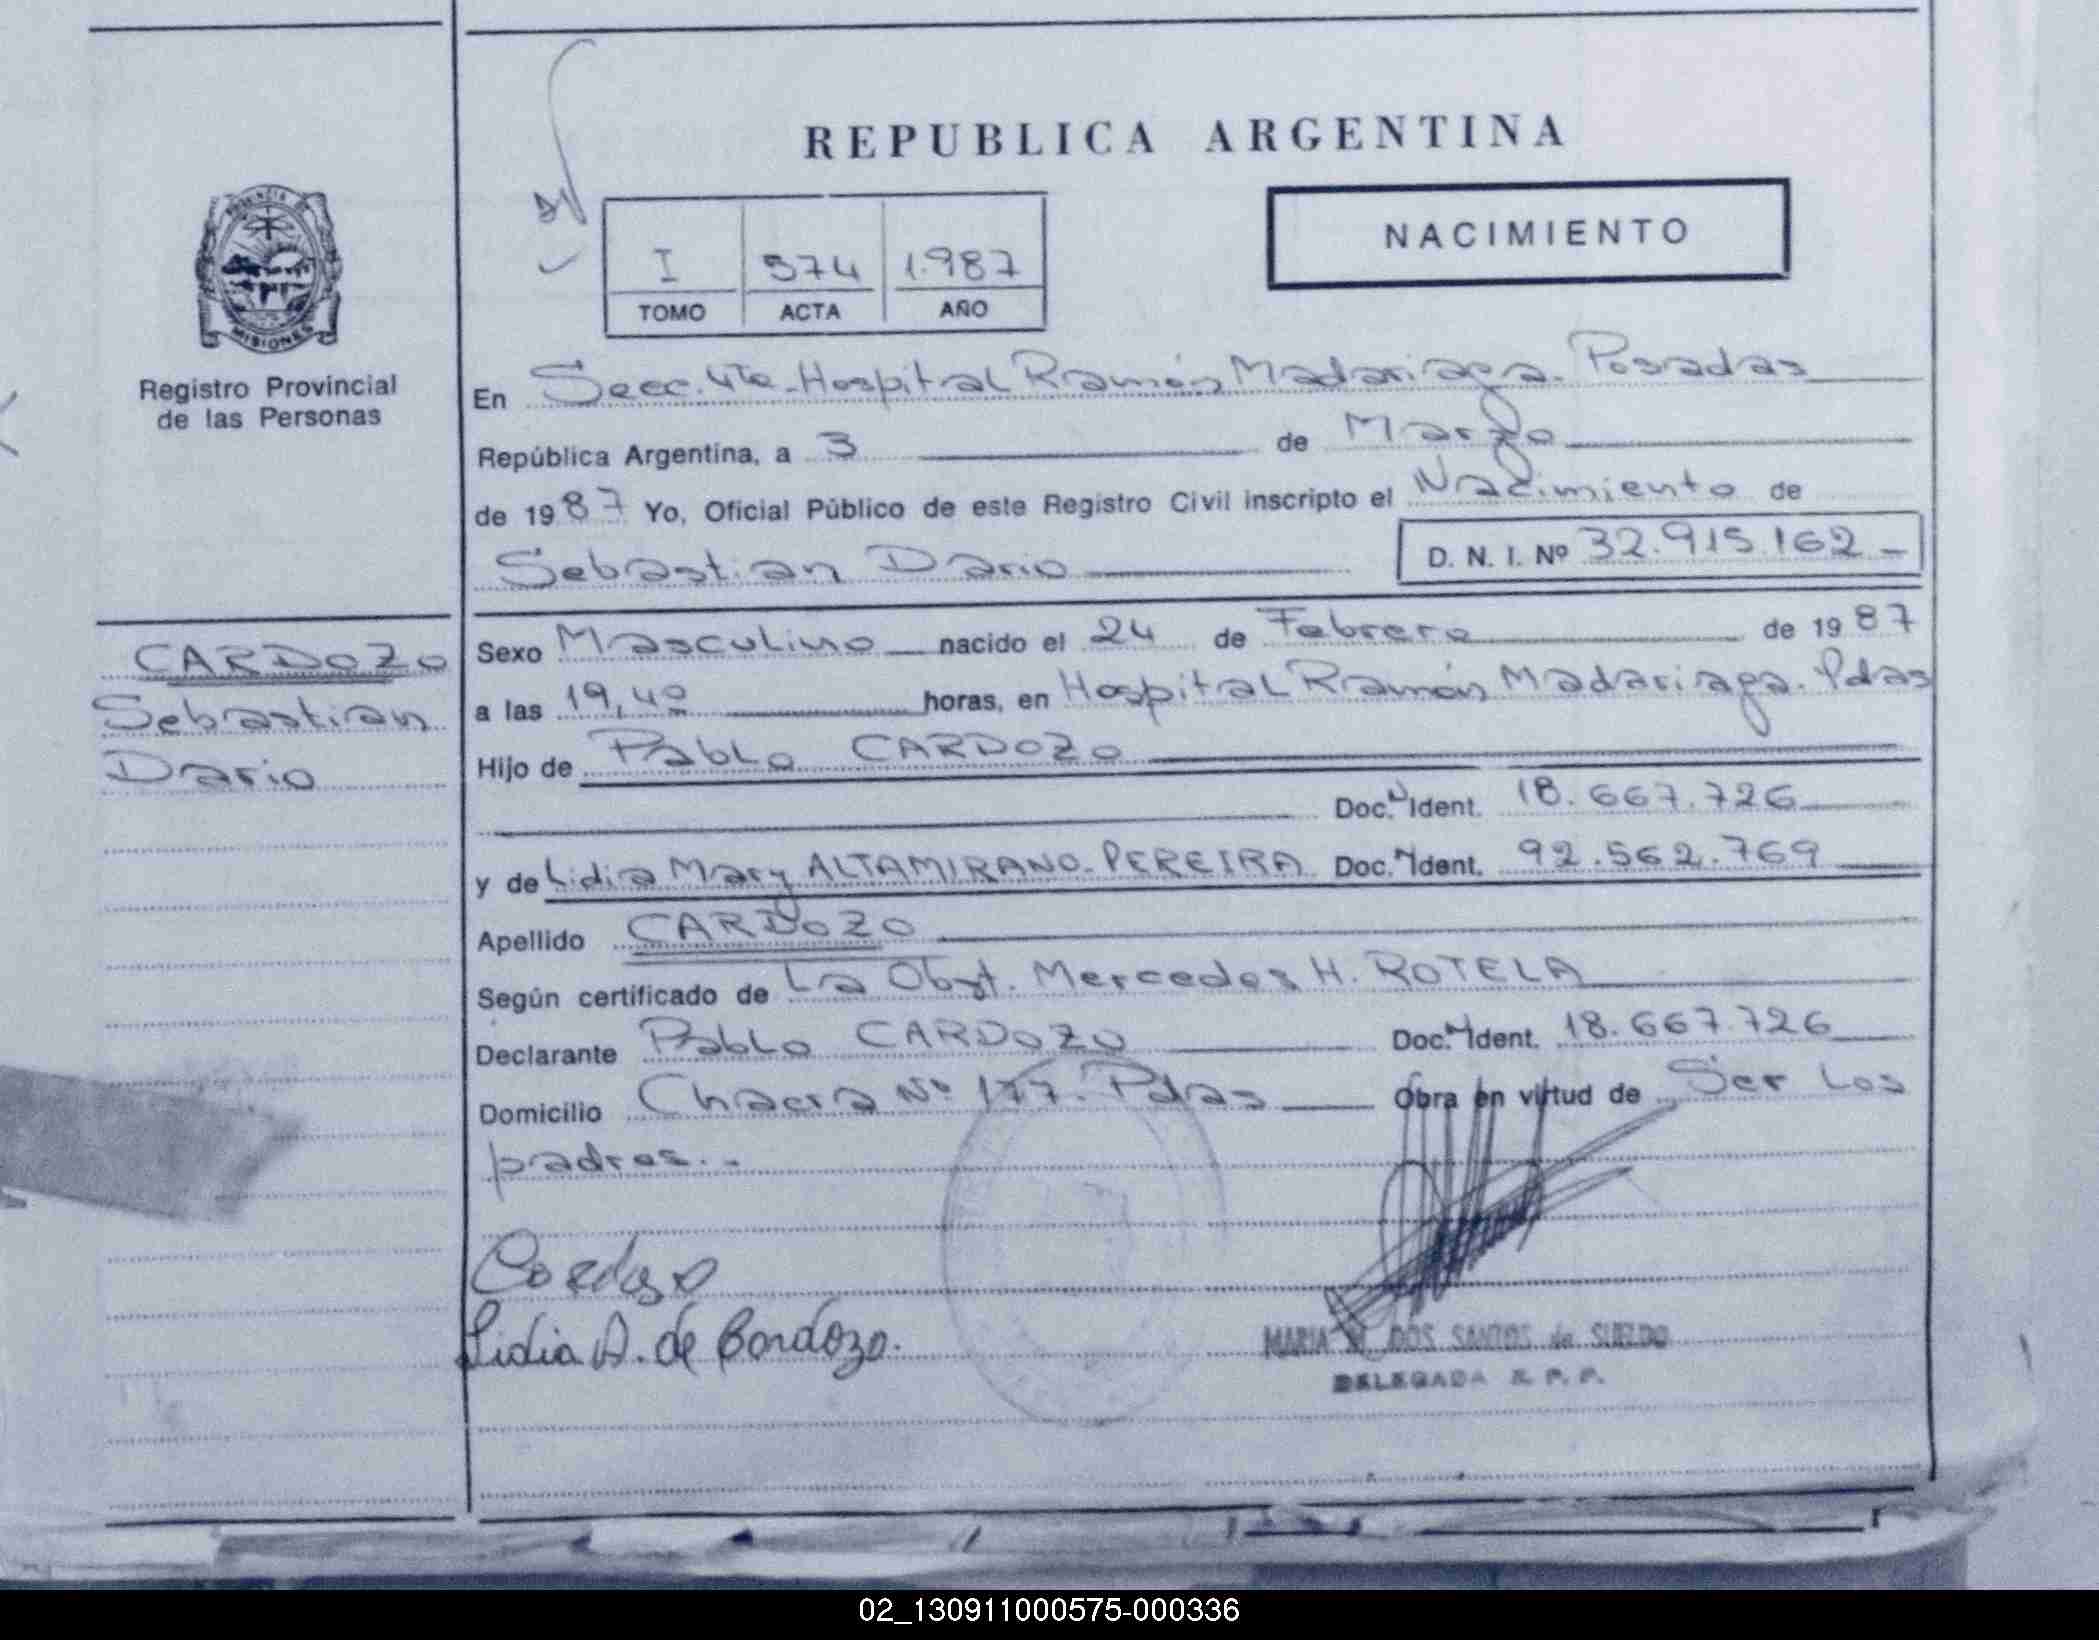 REPUBLICA ARGENTINA
NACIMIENTO
I 574 1.987
TOMO ACTA AÑO
PROVINCIA DE
MISIONES
Registro Provincial
de las Personas
En Secc. 4ta. Hospital Ramón Madariaga. Posadas
República Argentina, a 3 de Marzo
de 1987 Yo, Oficial Público de este Registro Civil inscripto el Nacimiento de
Sebastian Dario D. N. I. Nº 32.915.162
CARDOZO
Sebastian
Dario
Sexo Masculino nacido el 24 de Febrero de 1987
a las 19,40 horas, en Hospital Ramón Madariaga. Pdas
Hijo de Pablo CARDOZO
Doc. Ident. 18.667.726
y de Lidia Mary ALTAMIRANO-PEREIRA Doc. Ident. 92.562.769
Apellido CARDOZO
Según certificado de La Obst. Mercedes H. ROTELA
Declarante Pablo CARDOZO Doc. Ident. 18.667.726
Domicilio Chacra Nº 177. Pdas Obra en virtud de Ser Los
padres..
Cardozo
Lidia A. de Cardozo.
MARIA DOS SANTOS de SUELDO
DELEGADA R. P. P.
02_130911000575-000336